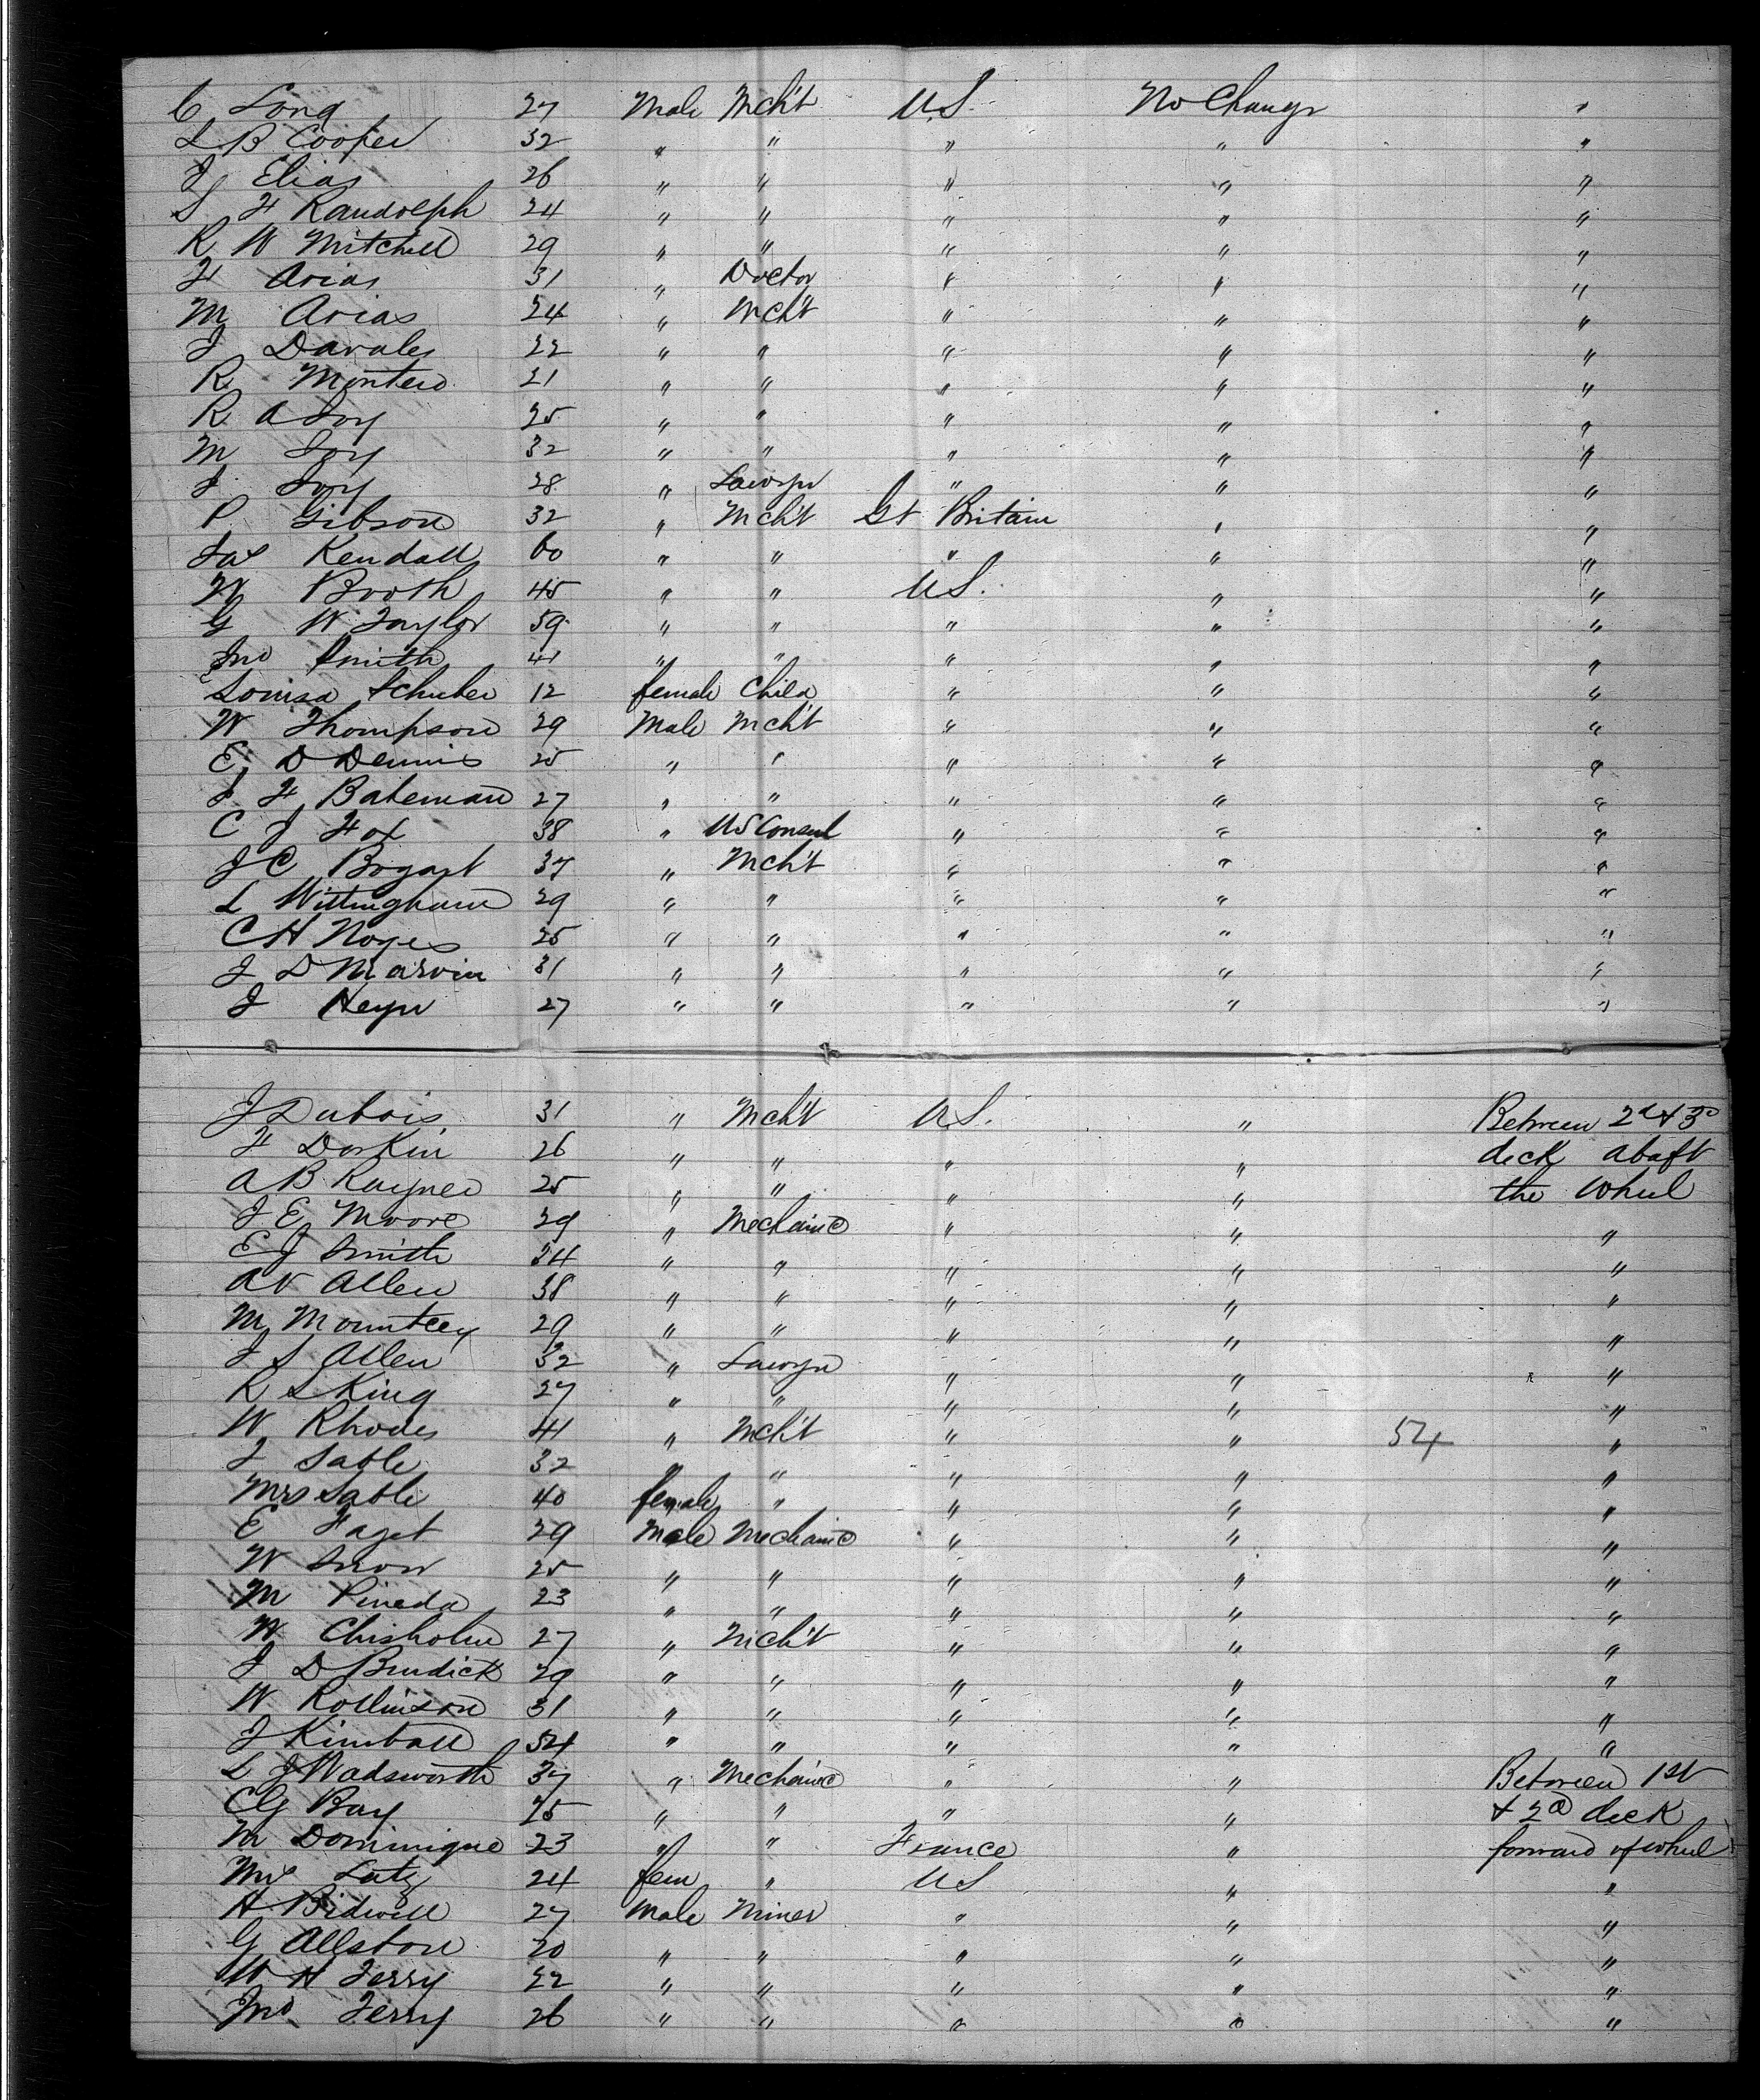 C Long 27 Male Mch't U.S. No Change "
L B Cooper 32 " " " " "
J Elias 26 " " " " "
S F Randolph 24 " " " " "
R W Mitchell 29 " " " " "
F Arias 31 " Doctor " " "
M Arias 24 " Mch't " " "
J Davales 22 " " " " "
R Montero 21 " " " " "
R A Joy 25 " " " " "
M Joy 32 " " " " "
J Joy 28 " Lawyer " " "
P Gibson 32 " Mch't Gt Britain " "
Jas Kendall 60 " " " " "
W Booth 45 " " U.S. " "
G W Taylor 59 " " " " "
Jno Smith 41 " " " " "
Louisa Schuber 12 female Child " " "
W Thompson 29 Male Mch't " " "
E D Dennis 25 " " " " "
J F Bateman 27 " " " " "
C J Fox 38 " US Consul " " "
J C Bogart 37 " Mch't " " "
L Wittingham 29 " " " " "
C H Noyes 25 " " " " "
J D Marvin 31 " " " " "
J Heyn 27 " " " " "
J Dubois 31 " Mch't U.S. " Between 2d & 3d
F Dorkin 26 " " " " deck abaft
A B Rayner 25 " " " " the wheel
J E Moore 29 " Mechanic " " "
E J Smith 34 " " " " "
A V Allen 38 " " " " "
M Mountcey 29 " " " " "
J S Allen 32 " Lawyer " " "
R S King 27 " " " " "
W Rhodes 41 " Mch't " " 54 "
J Sable 32 " " " " "
Mrs Sable 40 female " " " "
E Faget 29 Male Mechanic " " "
W Snow 25 " " " " "
M Pineda 23 " " " " "
W Chisholm 27 " Mch't " " "
J D Burdick 29 " " " " "
W Rollinson 31 " " " " "
J Kimball 54 " " " " "
L J Wadsworth 37 " Mechanic " " Between 1st
C G Bay 25 " " " " & 2d deck
M Dominique 23 " " France " forward of wheel
Mrs Latz 24 fem " U S " "
H Bidwell 27 Male Miner " " "
G Allston 20 " " " " "
W H Terry 22 " " " " "
Jno Terry 26 " " " " "